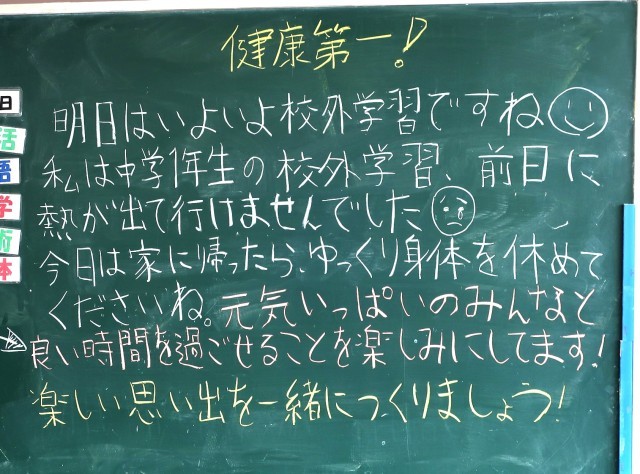 健康第一!
明日はいよいよ校外学習ですね
私は中学1年生の校外学習、前日に
熱が出て行けませんでした
今日は家に帰ったら、ゆっくり身体を休めて
くださいね。元気いっぱいのみんなと
良い時間を過ごせることを楽しみにしてます!
楽しい思い出を一緒につくりましょう!
日
活
語
学
術
体